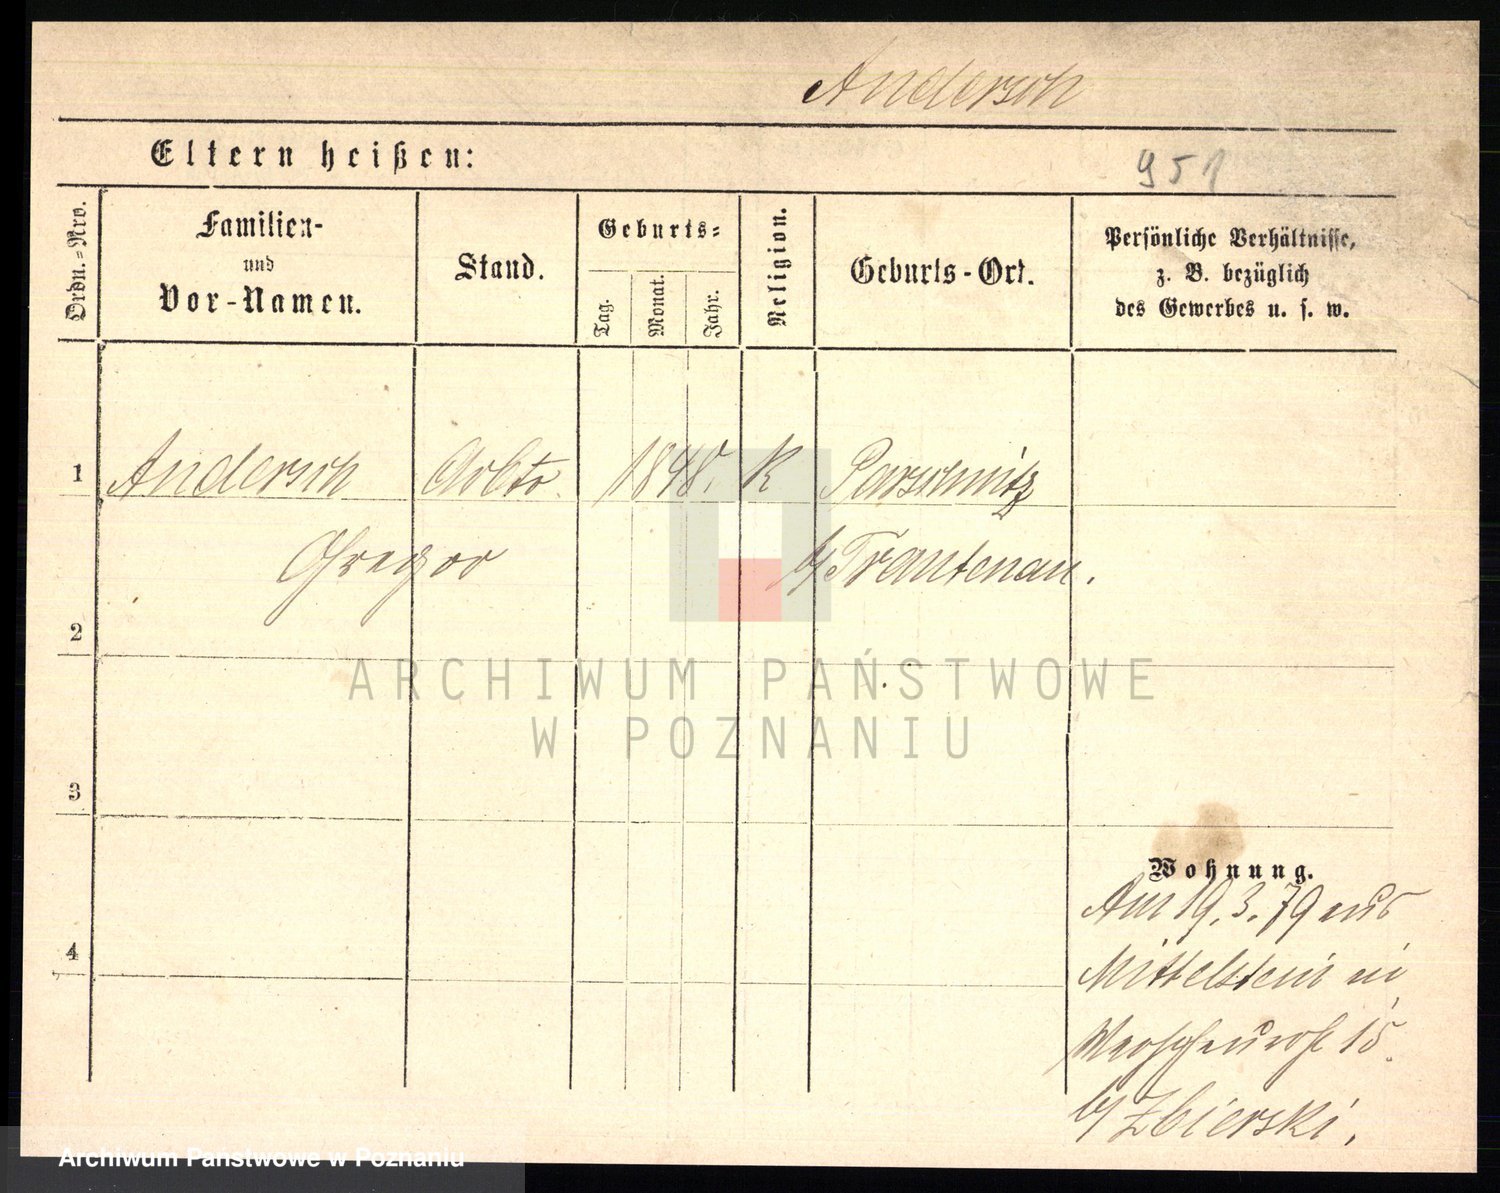 Andersch
Eltern heißen:
951
Ordn.-Nro.
Familien-
und
Vor-Namen.
Stand.
Geburts-
Tag.
Monat.
Jahr.
Religion.
Geburts-Ort.
Persönliche Verhältnisse,
z. B. bezüglich
des Gewerbes u. s. w.
1 Andersch Arbtr. 1848. K Parschnitz
Gregor b/ Trautenau.
2
ARCHIWUM PAŃSTWOWE
W POZNANIU
3
Wohnung.
Am 19.3.79 aus
4
Mittelstein in
15.
b/ Zbierski.
Archiwum Państwowe w Poznaniu